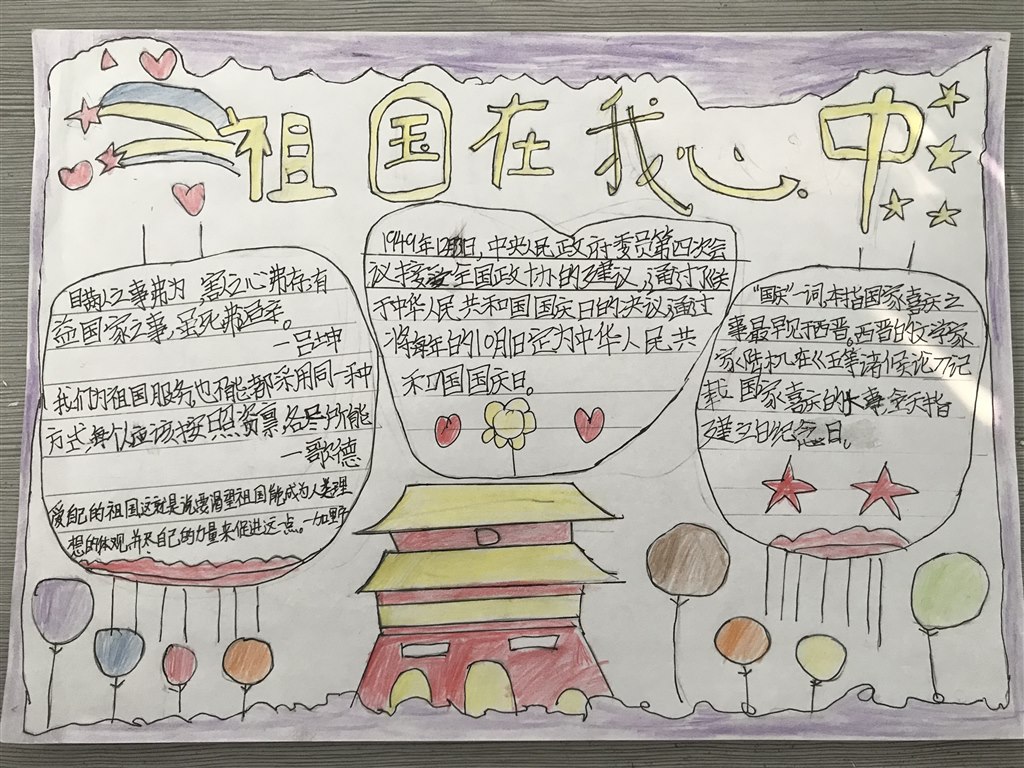 祖国在我心中
之事弗为 害之心弗存有
益国家之事,虽死弗避。
—吕坤
我们为祖国服务也不能都采用同一种
方式每个人应该按照资禀各尽所能
—歌德
爱自己的祖国这就是说要渴望祖国能成为人类理
想的体现并尽自己的力量来促进这一点。—别
1949年12月日,中央民政府委员第四次会
议接受全国政协的建议,通过《关
于中华人民共和国国庆日的决议,通过
将每年的10月1日定为中华人民共
和国国庆日。
"国庆"一词,本指国家喜庆之
事最早见于西晋。西晋的文学家
家陆机在《五等诸侯论》记
载 国家喜庆的大事,今天指
建立日纪念日。